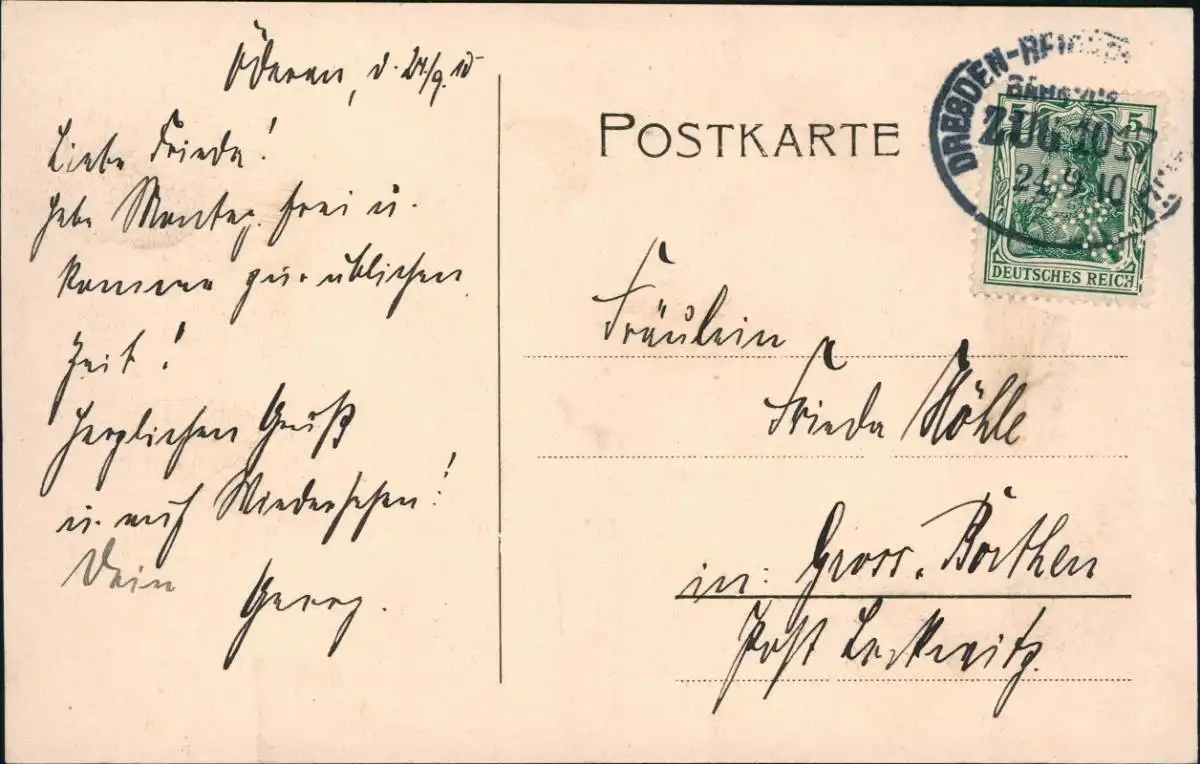 Öderan, d. 24/9. 10
Liebe Frieda!
Habe Montag frei u.
komme zur üblichen
Zeit!
Herzlichen Gruß
u. auf Wiedersehen!
Dein
Georg.
POSTKARTE
DRESDEN-REICH
BAHNPOST
ZUG 1017
24 9 10
5 5
DEUTSCHES REICH
Fräulein
Frieda Höhle
in: Gross-Börthen
Post Lockwitz.